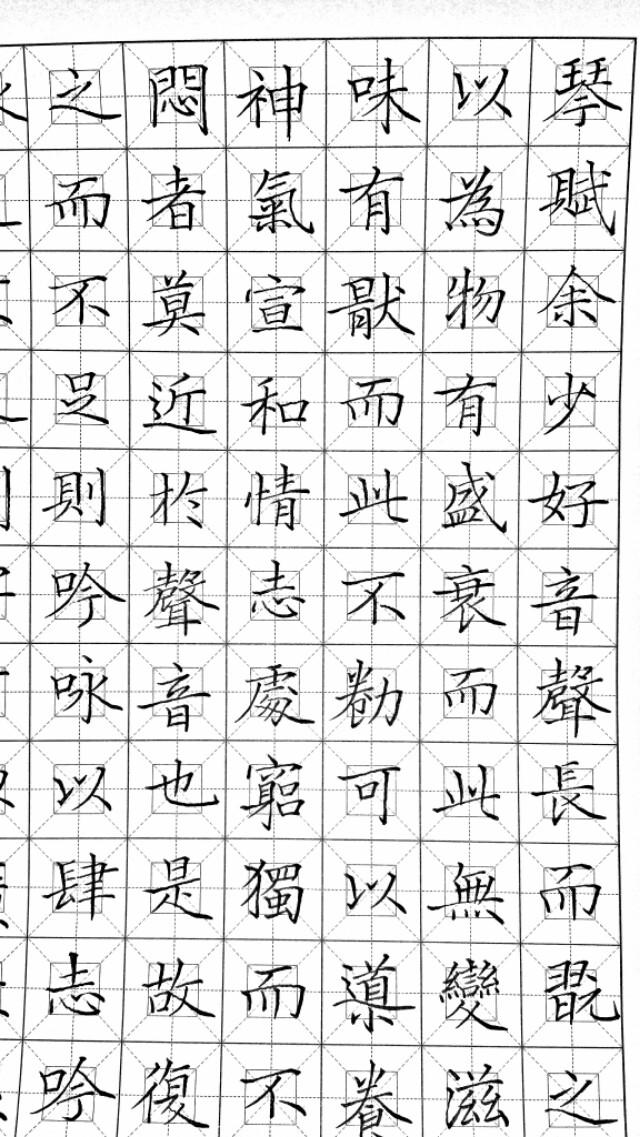 琴賦余少好音聲長而翫之
以為物有盛衰而此無變滋
味有猒而此不勌可以導養
神氣宣和情志處窮獨而不
悶者莫近於聲音也是故復
之而不足則吟咏以肆志吟